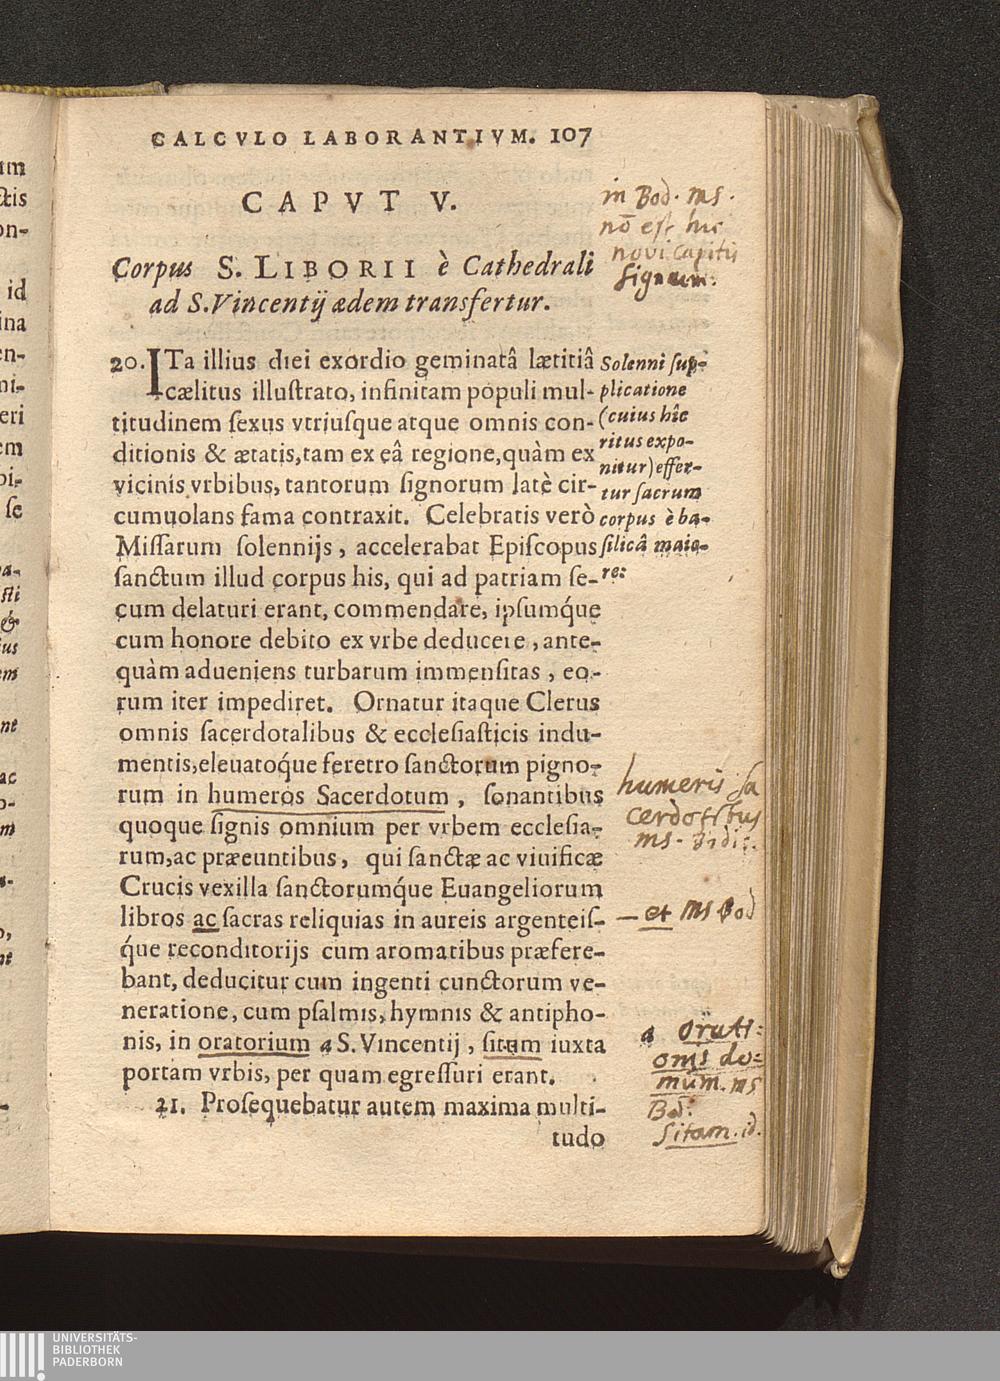 CALCVLO LABORANTIVM. 107
CAPVT V.
Corpus S. LIBORII è Cathedrali
ad S. Vincentij ædem transfertur.
20. ITa illius diei exordio geminatâ lætitiâ
cælitus illuſtrato, infinitam populi mul-
titudinem ſexus vtriuſque atque omnis con-
ditionis & ætatis, tam ex eâ regione, quàm ex
vicinis vrbibus, tantorum ſignorum latè cir-
cumuolans fama contraxit. Celebratis verò
Miſſarum ſolennijs, accelerabat Epiſcopus
ſanctum illud corpus his, qui ad patriam ſe-
cum delaturi erant, commendare, ipſumq́ue
cum honore debito ex vrbe deducere, ante-
quàm adueniens turbarum immenſitas, eo-
rum iter impediret. Ornatur itaque Clerus
omnis ſacerdotalibus & eccleſiaſticis indu-
mentis, eleuatoq́ue feretro ſanctorum pigno-
rum in humeros Sacerdotum, ſonantibus
quoque ſignis omnium per vrbem eccleſia-
rum, ac præeuntibus, qui ſanctæ ac viuificæ
Crucis vexilla ſanctorumq́ue Euangeliorum
libros ac ſacras reliquias in aureis argenteiſ-
q́ue reconditorijs cum aromatibus præfere-
bant, deducitur cum ingenti cunctorum ve-
neratione, cum pſalmis, hymnis & antipho-
nis, in oratorium a S. Vincentij, ſitum iuxta
portam vrbis, per quam egreſſuri erant.
21. Proſequebatur autem maxima multi-
tudo
in Bod. ms.
nō est hic
novi capitis
signum.
Solenni ſup-
plicatione
(cuius hîc
ritus expo-
nitur) effer-
tur ſacrum
corpus è ba-
ſilicâ maio-
re:
humeris sa
cerdotibus
ms.
– et ms Bod
a orati:
onis do:
mum. ms
Bod.
Sitam. id.
um
ctis
on-
id
ina
en-
ni-
eri
em
bi-
ſe
UNIVERSITÄTS-
BIBLIOTHEK
PADERBORN